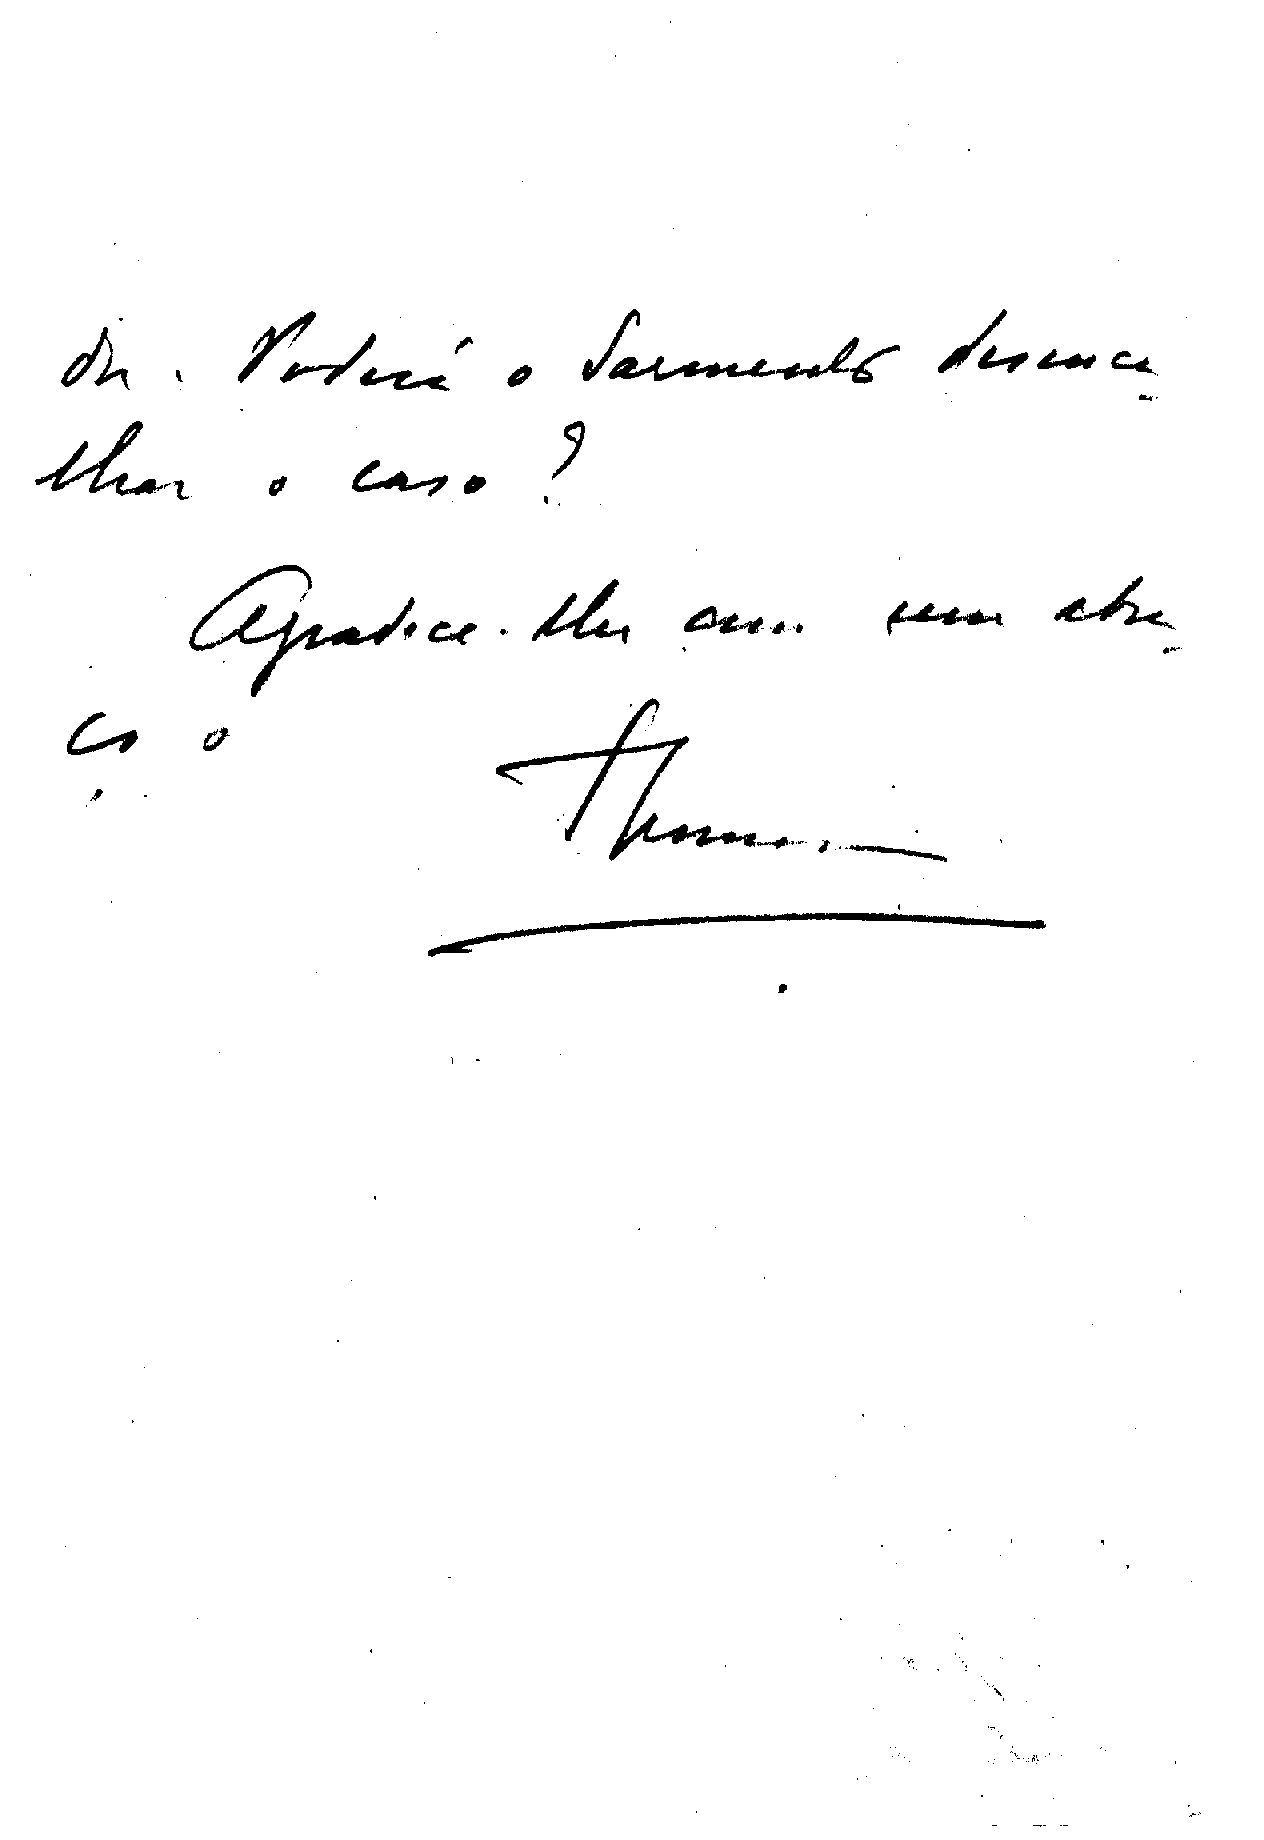 dir. Poderá o Sarmento desenca
lhar o caso?
Agradece-lhe com um abra
ço o